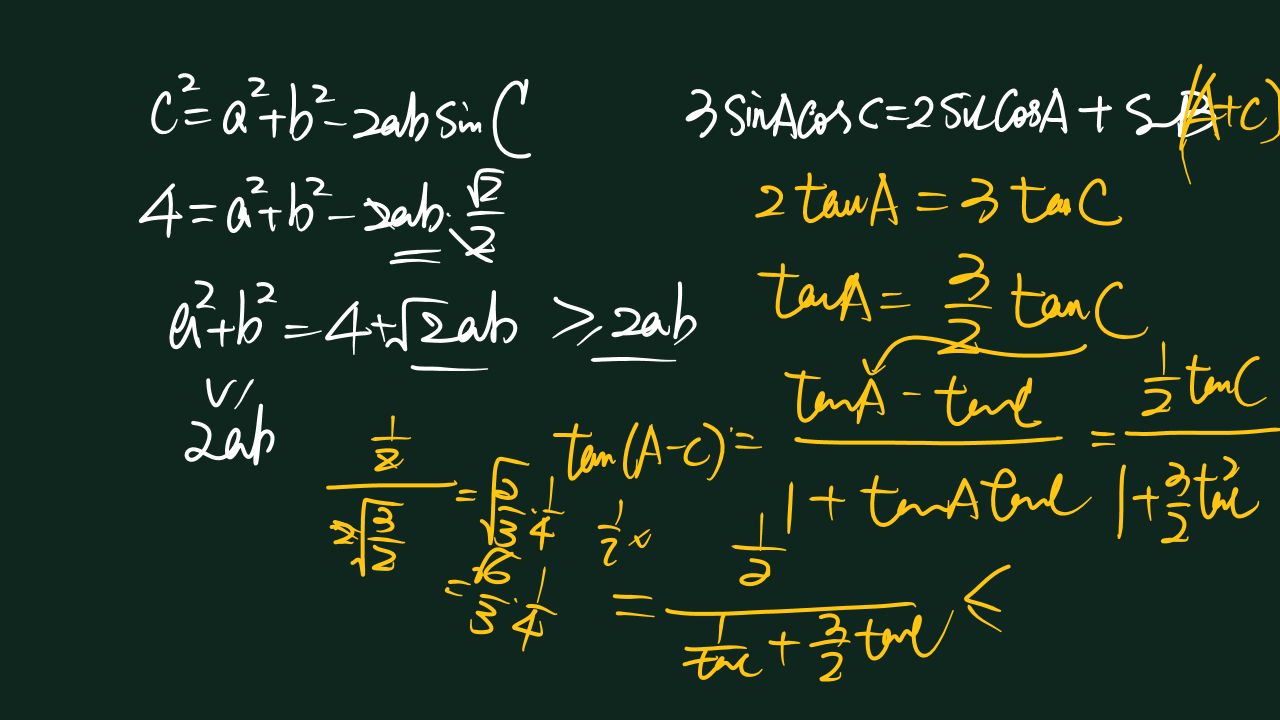 c²=a²+b²-2ab sin C
4=a²+b²-2ab·√2/2
a²+b²=4+√2ab ≥2ab
2ab
3sinAcosC=2sinCcosA+sin(A+C)
2tanA=3tanC
tanA=3/2 tanC
tan(A-C)=(tanA-tanC)/(1+tanAtanC)=(1/2 tanC)/(1+3/2 tan²C)
=(1/2)/(1/tanC+3/2 tanC) ≤
(1/2)/(2√(3/2))=√(2/3)·1/4
=√6/3·1/4
1/2×